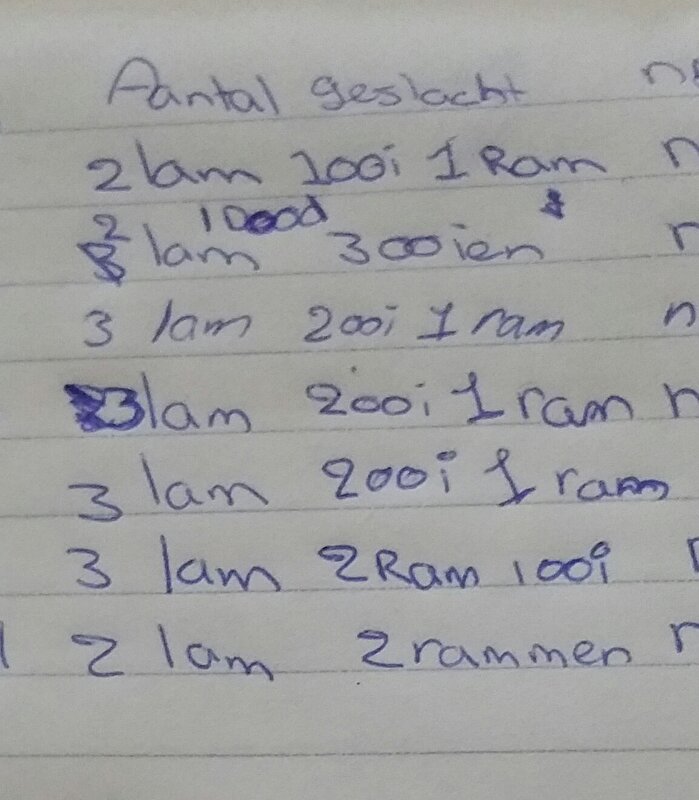 Aantal geslacht
2 lam 1 ooi 1 Ram n
1 dood
2 lam 3 ooien n
3 lam 2 ooi 1 ram n
3 lam 2 ooi 1 ram n
3 lam 2 ooi 1 ram
3 lam 2 Ram 1 ooi
2 lam 2 rammen